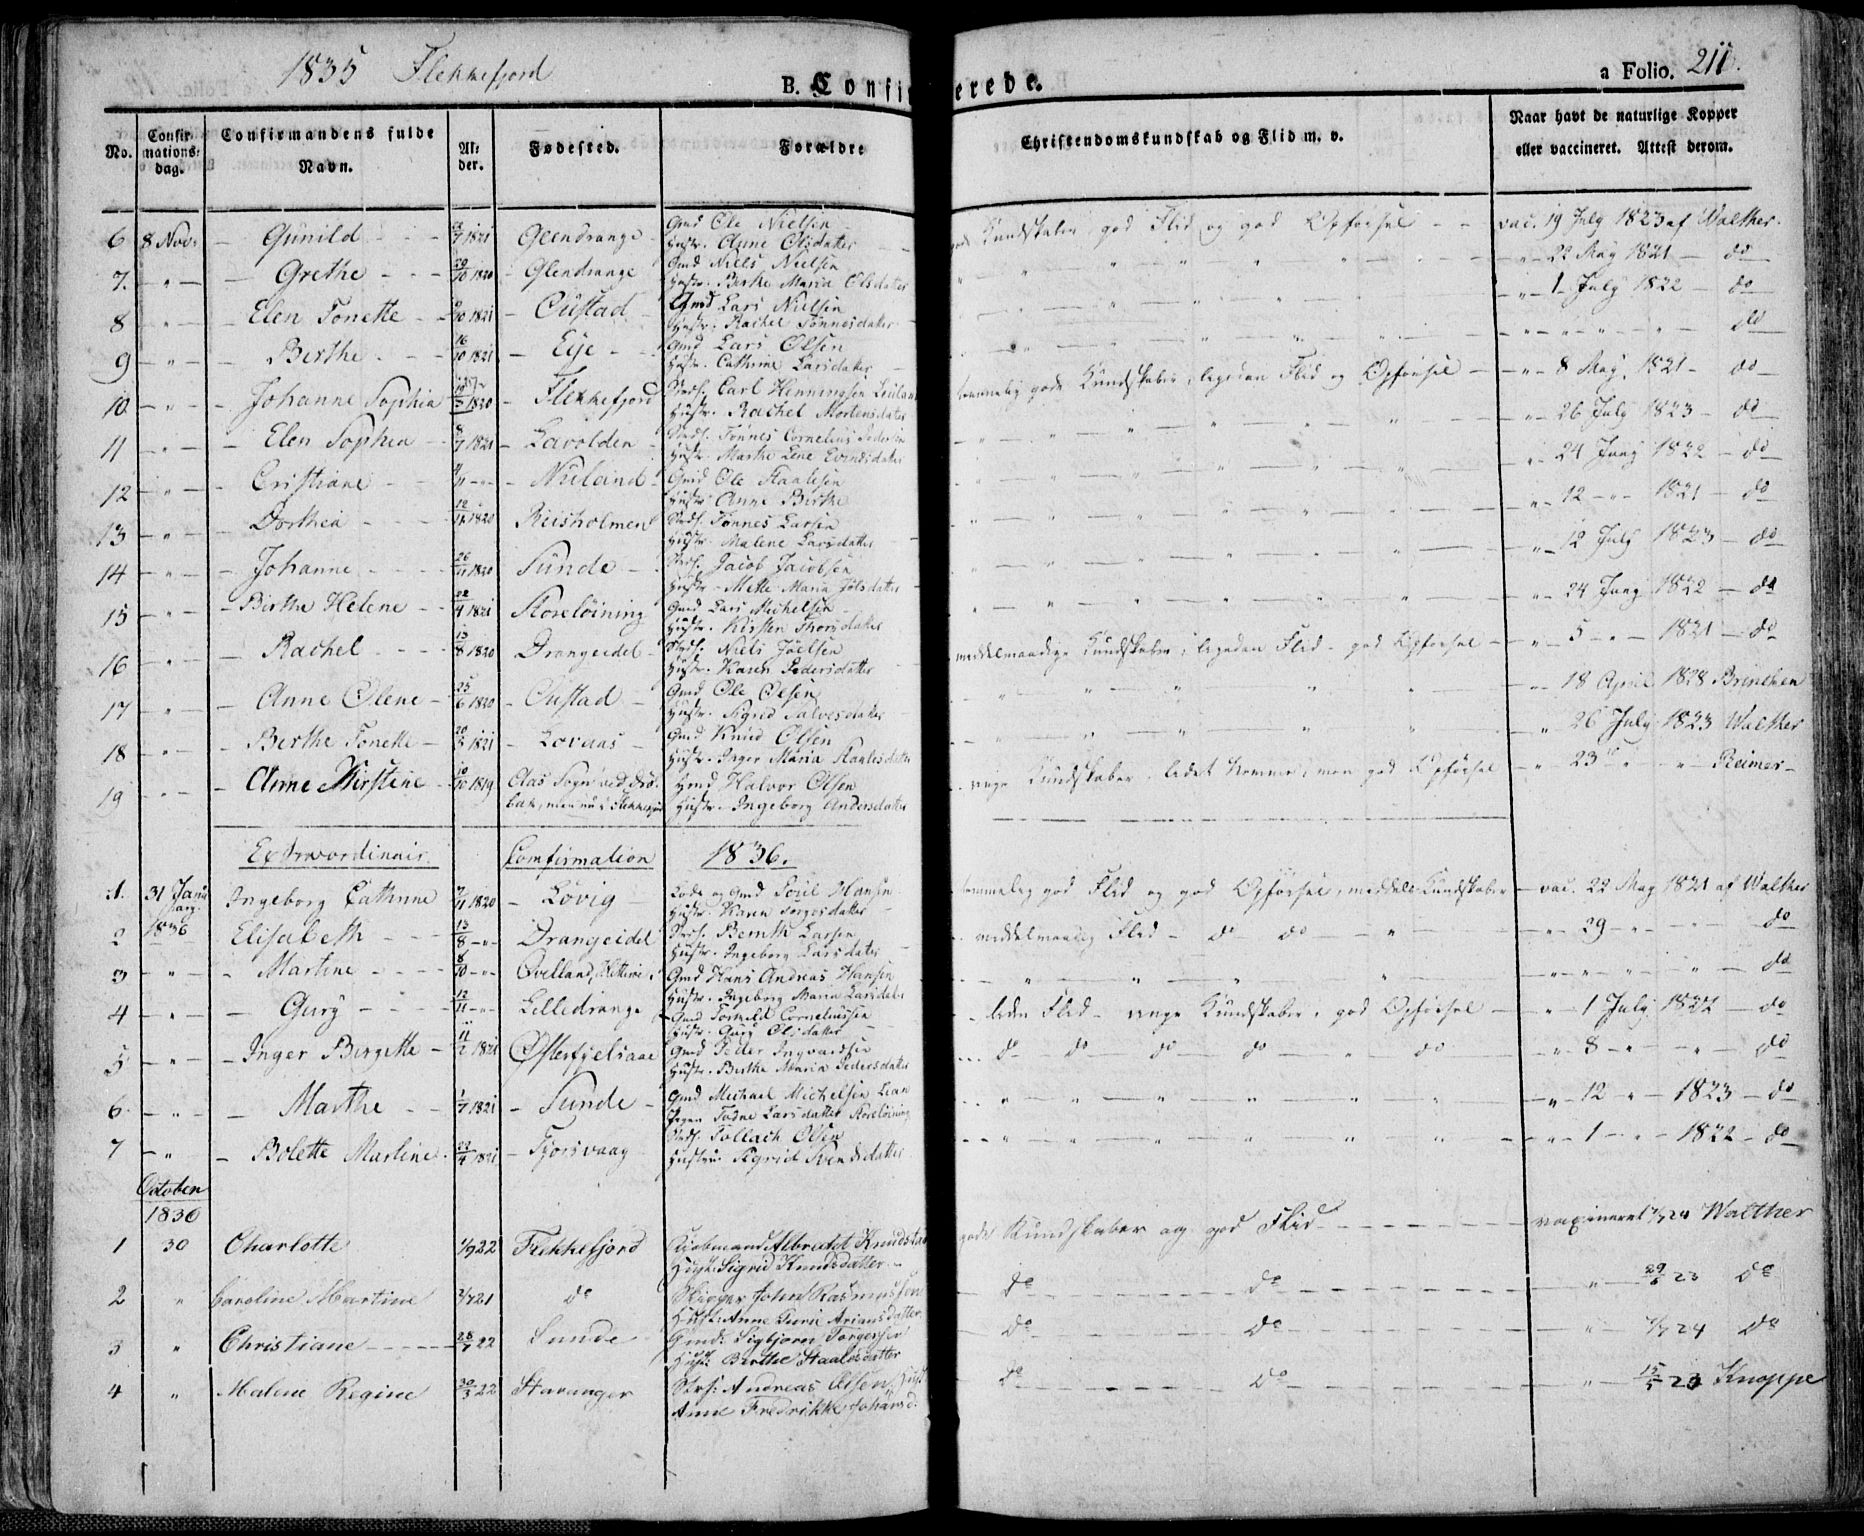 1835 Flekkefjord
B. Confirmerede.
a Folio. 211.
No.
Confir-
mations-
dag.
Confirmandens fulde
Navn.
Al-
der.
Fødested.
Forældre
Christendomskundskab og Flid m. v.
Naar havt de naturlige Kopper
eller vaccineret. Attest derom.
6 8 Nov: Gunild 1821 Glendrange Gmd Ole Nielsen
Hustr. Anne Olsdatter
Kundskaber god Flid og god Opførsel vac. 19 July 1823 af Walther.
7. " Grethe 29/10 1820 Glendrange Gmd Niels Nielsen
Hustr. Berthe Maria Olsdatter
" 22 May 1821 do
8 " Elen Tonette 10 1821 Oustad Gmd Lars Nielsen
Hustr. Rachel Tønnesdatter
" 1 July 1822 do
9 " Berthe 16/10 1821 Eije Gmd Lars Olsen
Hustr. Cathrine Larsdatter
" " " " do
10 " Johanne Sophia 1820 Flekkefjord Strds. Carl Henningsen
Hustr. Rachel Mortensdatter
temmelig gode Kundskaber, ligedan Flid og Opførsel " 8 May 1821 do
11 " Elen Sophia 8/7 1821 Lavolden Strds. Tønnes Cornelius Pedersen
Hustr. Marthe Lene Evindsdatter
" 26 July 1823 do
12 " Cristiane Nuland Gmd Ole Staalesen
Hustr Anne Birthe
" 24 Juny 1822 do
13 " Dorthea 12/12 1820 Riisholmen Strds. Tønnes Larsen
Hustr. Malene Larsdatter
" 12 " 1821 do
14 " Johanne 26/11 1820 Sunde Strds. Jacob Jacobsen
Hustr Mette Maria
" 12 July 1823 do
15 " Birthe Helene 22/4 1821 Storeløining Gmd Lars Michelsen
Hustr. Kirsten Thorsdatter
" 24 Juny 1822 do
16 " Rachel 13/8 1820 Drangeidel Strds. Niels Joelsen
Hustr. Karen Pedersdatter
middelmaadige Kundskaber, ligedan Flid, god Opførsel " 5 " 1821 do
17 " Anne Olene 25/6 1820 Oustad Gmd Ole Olsen
Hustr. Sigrid Salvesdatter
" 18 April 1828 Brinchen
18 " Berthe Tonette 20/3 1821 Lovaas Gmd Knud Olsen
Hustr. Inger Maria Staalesdatter
" 26 July 1823 Walther
19 " Anne Kirstine 10/10 1819 Aas Sogn ved Drø-
bak, men nu i Flekkefjord
Hmd Halvor Olsen
Hustr. Ingeborg Andersdatter
ringe Kundskaber, men god Opførsel " 23 " " Reimer
Extraordinair Comfirmation 1836.
1. 31 Januarj
1836
Ingeborg Cathrine 1820 Løvig Lods og Gmd Poul Hansen
Hustr. Karen Torgersdatter
temmelig god Flid og god Opførsel, middels Kundskaber vac. 22 May 1821 af Walther
2 Elisabeth 13/8 " Drangeidel Strds. Bernth Larsen
Hustr. Ingeborg Larsdatter
middelmaadig Flid do do " " 29 " " do
3 " Martine 8/10 " Qvelland, Gmd Hans Andreas Hansen
Hustr. Ingeborg Maria Larsdatter
" " " " do
4 " Gury 12/11 " Lilledrange Gmd Torkild Corneliussen
Hustr. Gury Olsdatter
liden Flid, ringe Kundskaber, god Opførsel " 1 July 1822 do
5 " Inger Birgitte 11/2 1821 Østerfjelsaae Gmd Peder Ingvardsen
Hustr. Berthe Maria Pedersdatter
do do do do " do " 8 " " do
6 " Marthe 7 1821 Sunde Gmd Michael Michelsen Lian
Pigen Tadne Larsdatter Storeløining
" 12 " 1823 do
7 " Bolette Martine 23/4 1821 Fjorsvaag Strds. Tollach Olsen
Hustru Sigrid Svendsdatter
" 1 " 1822 do
October
1836
1 30 Charlotte 1/9 22 Flekkefjord Kiøbmand Albrecht Knudsen
Hust: Sigrid Knudsdatter
gode Kundskaber og god Flid vaccineret 24 Walther
2 " Caroline Martine 21 do Skipper John Rasmussen
Hust: Anne Ariansdatter
do do " 29/6 23 do
3 " Christiane 28/7 22 Sunde Gmd: Sigbjørn Torgersen
Hust: Berthe Staalesdatter
do do " 24 do
4 " Malene Regine 30/3 22 Stavanger Strs: Andreas Olsen, Hust
Anne Fredrikke Johansd.
do do " 15/5 23 Knoppe